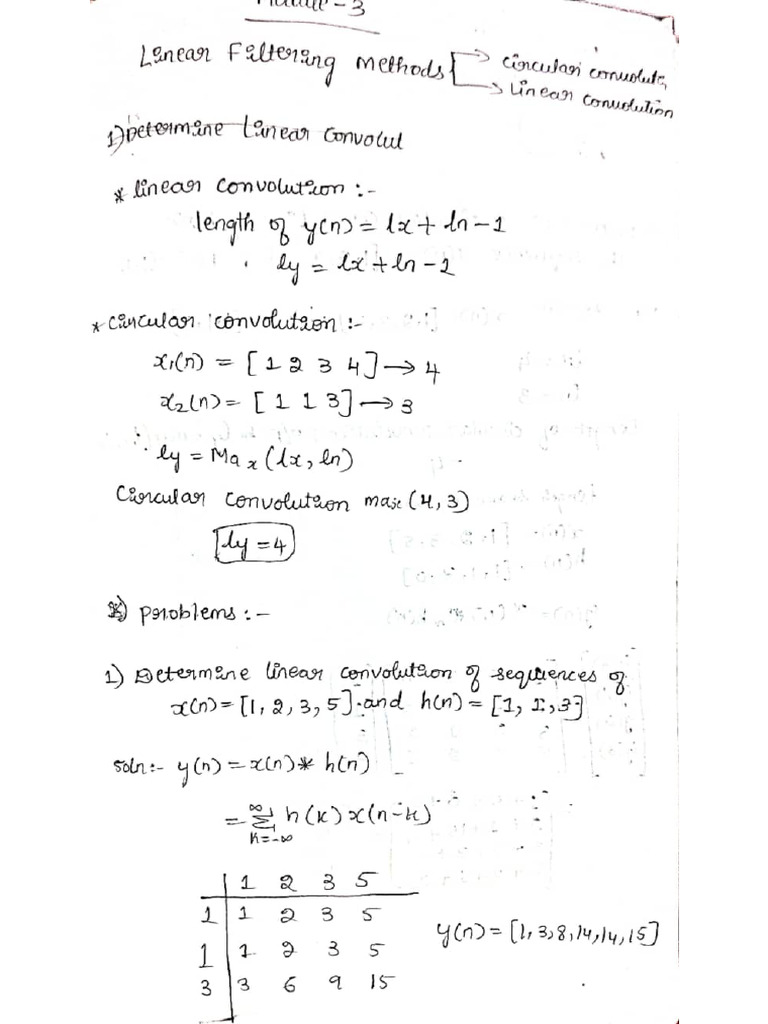 Linear Filtering Methods → circular convolutn
→ Linear convolution
1) Determine Linear convolut
* linear convolution :-
length of y(n) = lx + ln - 1
ly = lx + ln - 1
* circular convolution :-
x₁(n) = [ 1 2 3 4 ] → 4
x₂(n) = [ 1 1 3 ] → 3
∴ ly = Max (lx, ln)
Circular convolution max (4, 3)
ly = 4
*) problems :-
1) Determine linear convolution of sequences of
x(n) = [1, 2, 3, 5] and h(n) = [1, 1, 3]
soln:- y(n) = x(n) * h(n)
= ∞ Σ k=-∞ h(k) x(n-k)
1 2 3 5
1 1 2 3 5
1 1 2 3 5
3 3 6 9 15
y(n) = [1, 3, 8, 14, 14, 15]